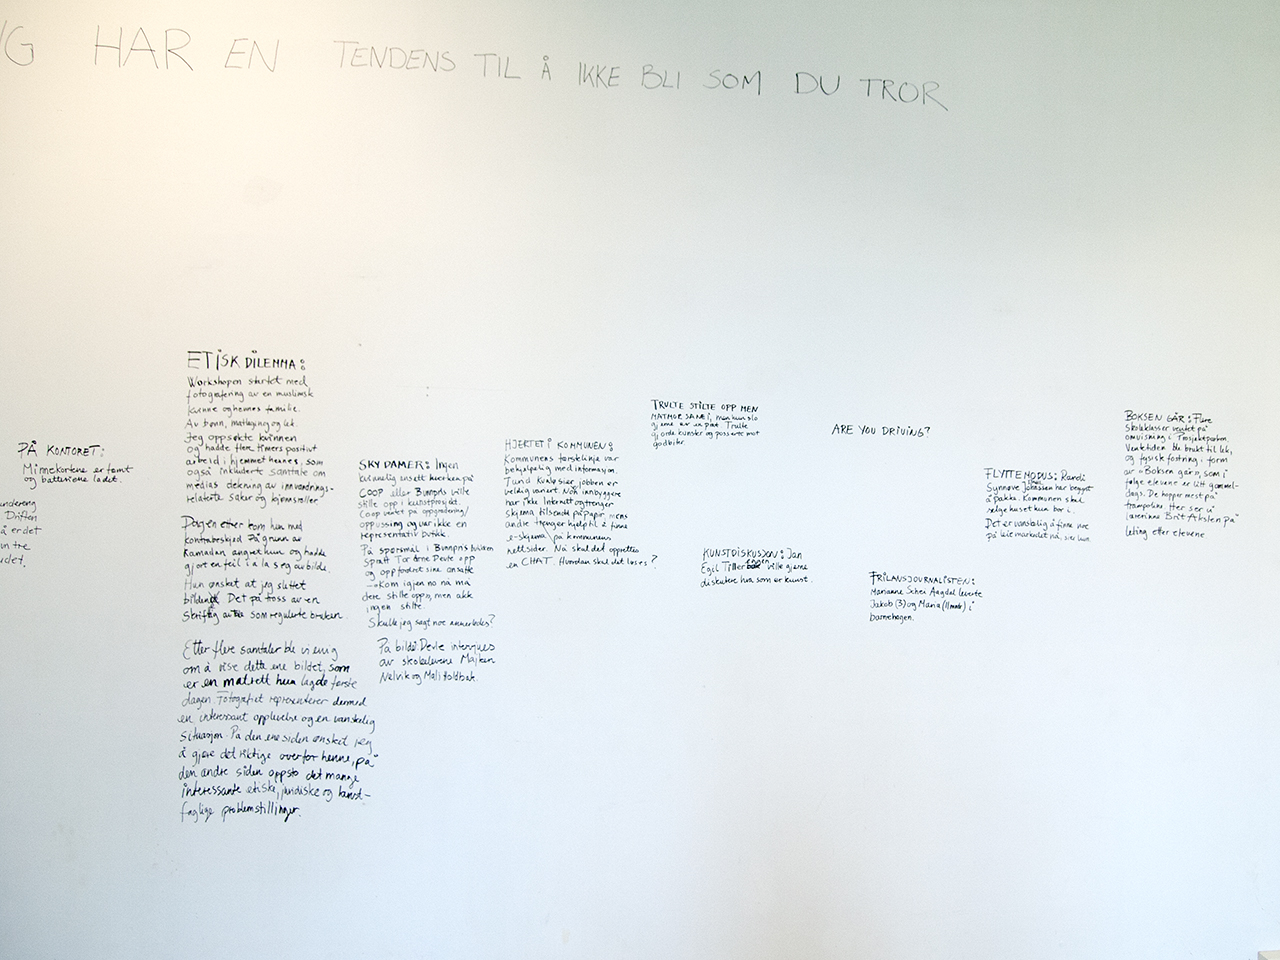 HAR EN TENDENS TIL Å IKKE BLI SOM DU TROR
PÅ KONTORET:
Minnekortene er tømt
og batteriene ladet.
Driften
å er det
tre
ETISK DILEMMA:
Workshopen startet med
fotografering av en muslimsk
kvinne og hennes familie.
Av bønn, matlaging og lek.
Jeg oppsøkte kvinnen
og hadde flere timers positivt
arbeid i hjemmet hennes, som
også inkluderte samtale om
medias dekning av innvandrings-
relaterte saker og kjønnsroller.
Dagen etter kom hun med
kontrabeskjed. På grunn av
Ramadan angret hun og hadde
gjort en feil i å la seg avbilde.
Hun ønsket at jeg slettet
bildene. Det på tross av en
skriftlig avtale som regulerte bruken.
Etter flere samtaler ble vi enig
om å vise dette ene bildet, som
er en matrett hun lagde første
dagen. Fotografiet representerer dermed
en interessant opplevelse og en vanskelig
situasjon. På den ene siden ønsket jeg
å gjøre det riktige overfor henne, på
den andre siden oppsto det mange
interessante etiske, juridiske og kunst-
faglige problemstillinger.
SKY DAMER: Ingen
kvinnelig ansatt hverken på
COOP eller Bunnpris ville
stille opp i kunstprosjekt.
Coop ventet på oppgradering/
oppussing og var ikke en
representativ butikk.
På spørsmål i Bunnpris butikken
spratt Tor Arne Devle opp
og oppfordret sine ansatte
– Kom igjen no na må
dere stille opp, men akk
ingen stilte.
Skulle jeg sagt noe annerledes?
På bilde: Devle intervjues
av skoleelevene Majken
Nelvik og Mali Holdbak.
HJERTET I KOMMUNEN:
Kommunens førstelinje var
behjelpelig med informasjon.
Turid Kvaløsier jobben er
veldig variert. Noen innbyggere
har ikke Internett og trenger
skjema tilsendt på papir, mens
andre trenger hjelp til å finne
e-skjema på kommunens
nettsider. Nå skal det opprettes
en CHAT. Hvordan skal det løses?
TRULTE STILTE OPP MEN
MATMOR SA NEI, men hun slo
gjerne av en prat. Trulte
gjorde kunster og posserte mot
godbiter
KUNSTDISKUSJON: Jan
Egil Tiller ville gjerne
diskutere hva som er kunst.
ARE YOU DRIVING?
FRILANSJOURNALISTEN:
Marianne Schei Aagdal leverte
Jakob (3) og Maria (11 mnd) i
barnehagen.
FLYTTEMODUS: Randi
Synnøve Johansen har begynt
å pakke. Kommunen skal
selge huset hun bor i.
Det er vanskelig å finne noe
på leiemarkedet nå, sier hun.
BOKSEN GÅR: Flere
skoleklasser ventet på
omvisning i Prosjektperlen.
Ventetiden ble brukt til lek,
og fysisk fostring i form
av «Boksen går», som i
følge elevene er litt gammel-
dags. De hopper mest på
trampoline. Her ser vi
lærerinne Brit Aksten på
leting etter elevene.